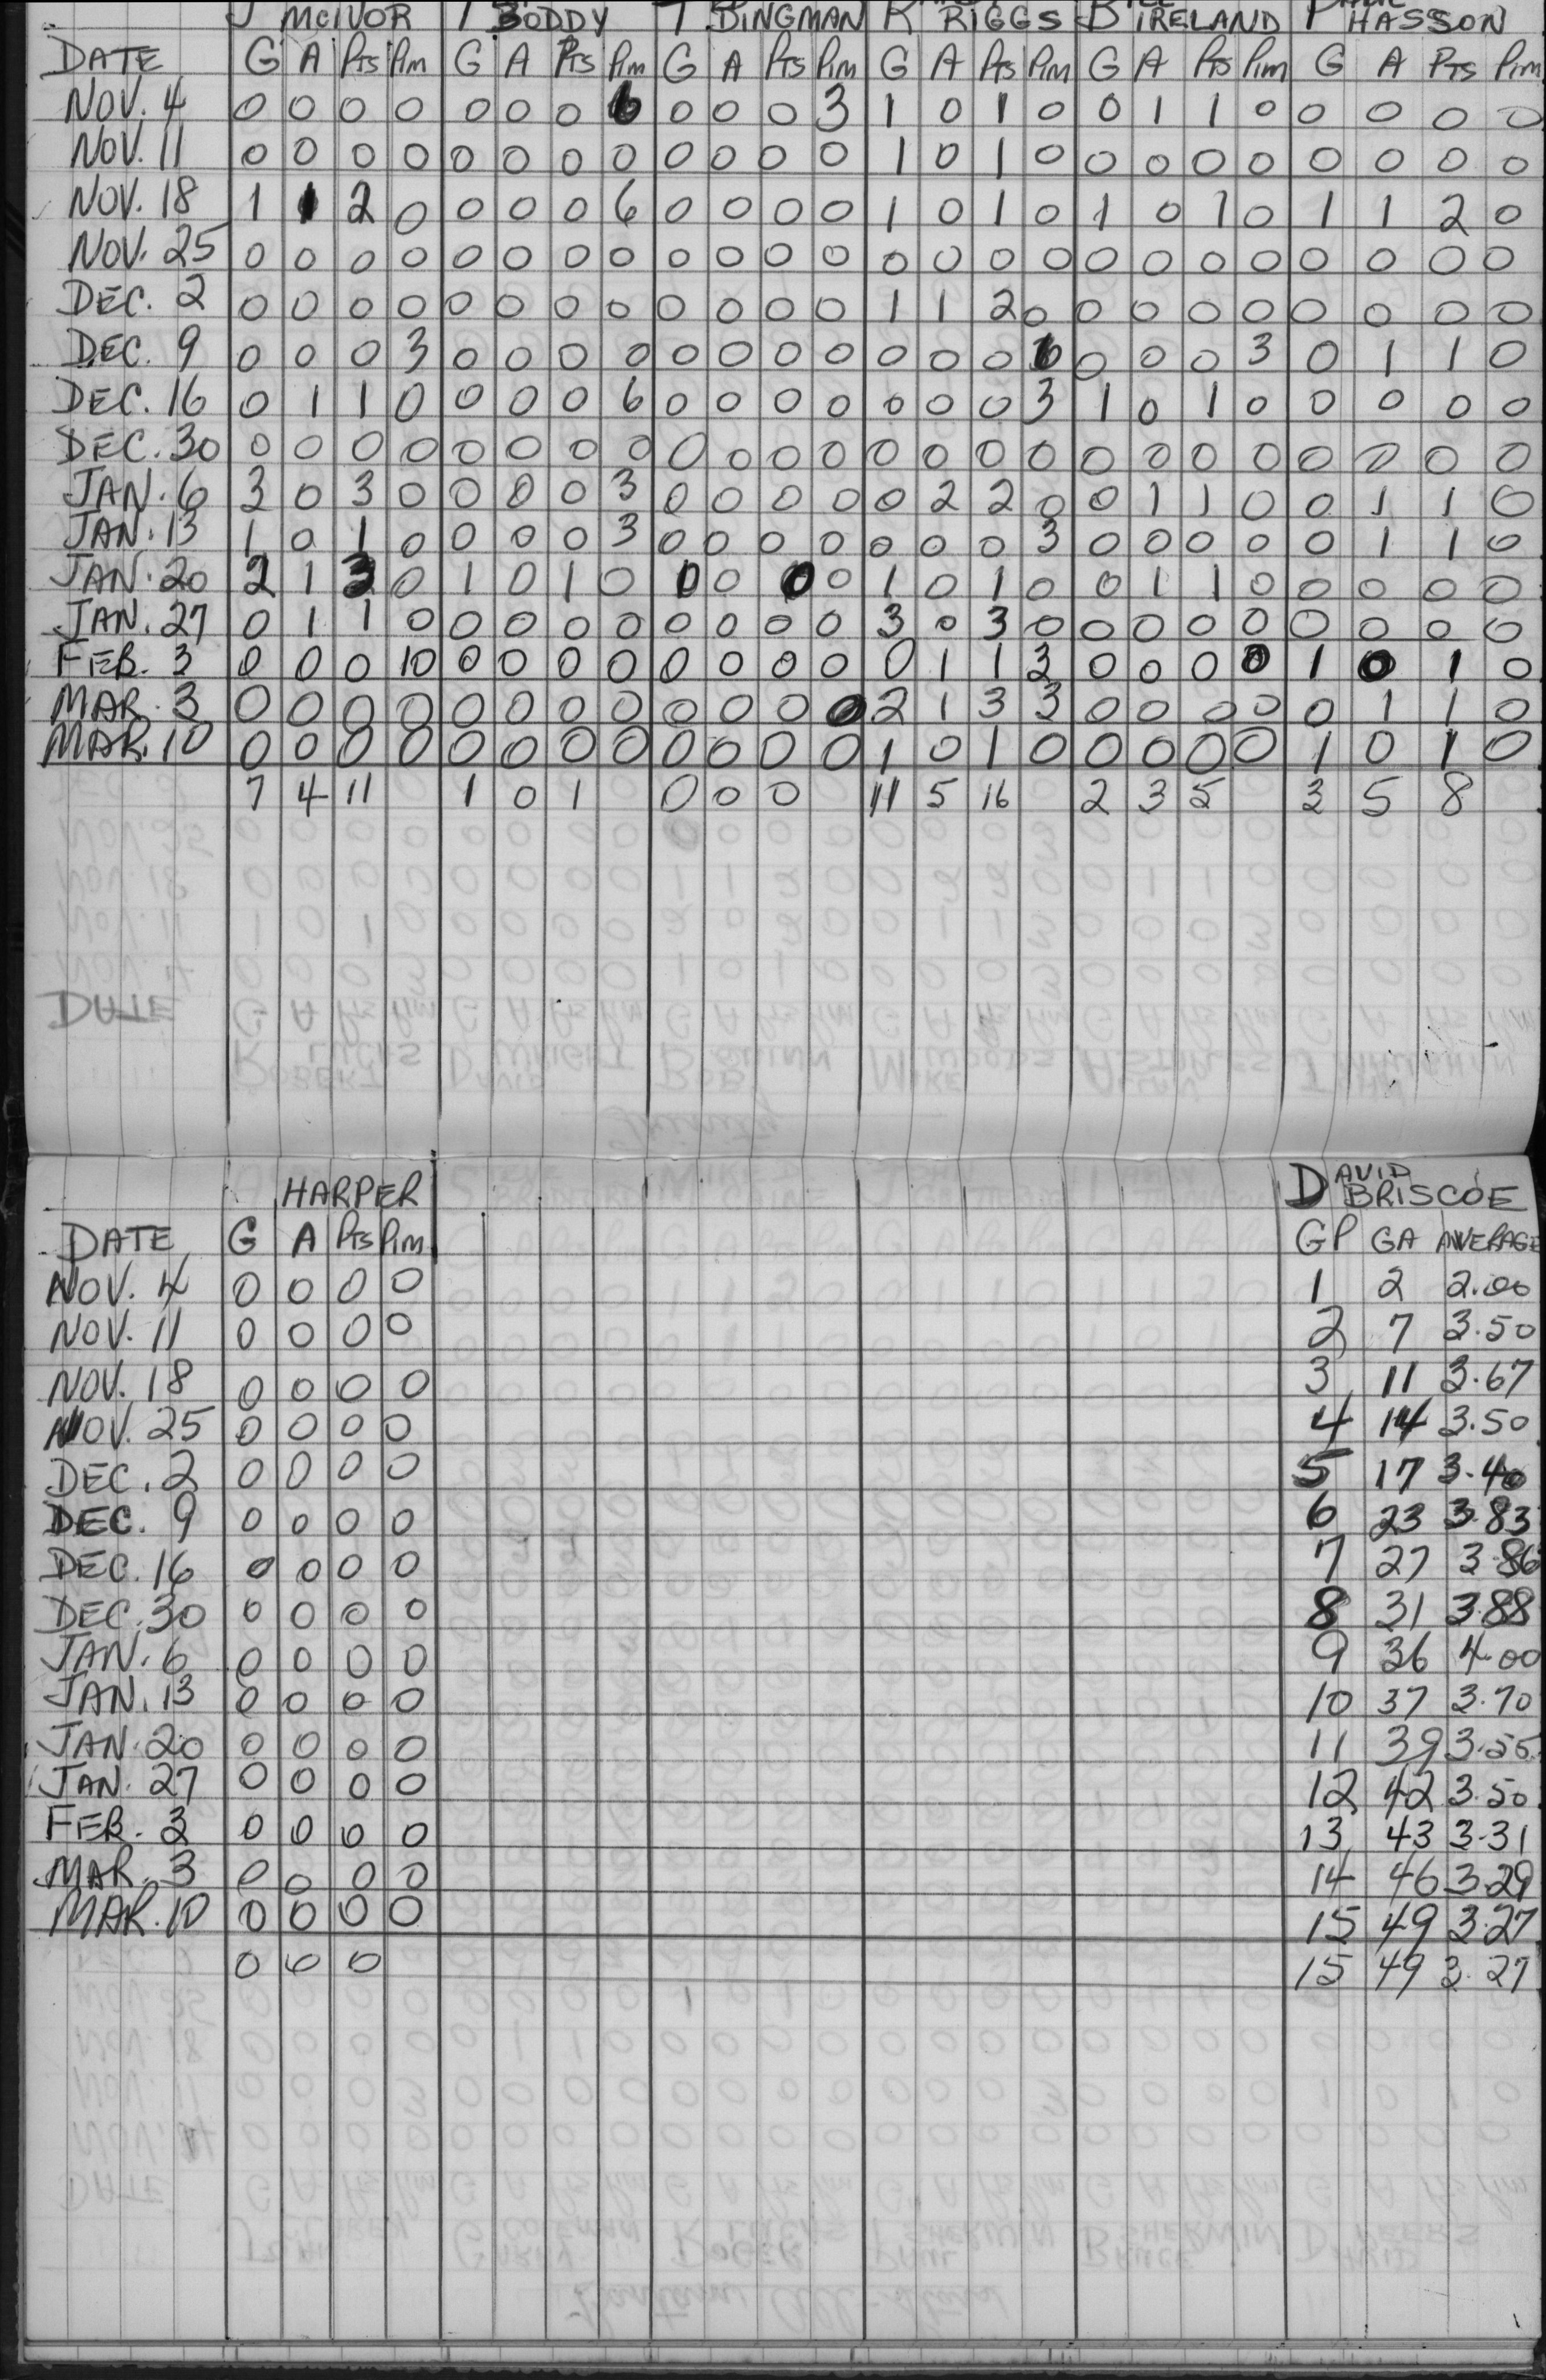 J McIVOR T BODDY T BINGMAN R RIGGS BILL IRELAND P HASSON
DATE G A Pts Pim G A Pts Pim G A Pts Pim G A Pts Pim G A Pts Pim G A Pts Pim
NOV. 4 0 0 0 0 0 0 0 6 0 0 0 3 1 0 1 0 0 1 1 0 0 0 0 0
NOV. 11 0 0 0 0 0 0 0 0 0 0 0 0 1 0 1 0 0 0 0 0 0 0 0 0
NOV. 18 1 1 2 0 0 0 0 6 0 0 0 0 1 0 1 0 1 0 1 0 1 1 2 0
NOV. 25 0 0 0 0 0 0 0 0 0 0 0 0 0 0 0 0 0 0 0 0 0 0 0 0
DEC. 2 0 0 0 0 0 0 0 0 0 0 0 0 1 1 2 0 0 0 0 0 0 0 0 0
DEC. 9 0 0 0 3 0 0 0 0 0 0 0 0 0 0 0 6 0 0 0 3 0 1 1 0
DEC. 16 0 1 1 0 0 0 0 6 0 0 0 0 0 0 0 3 1 0 1 0 0 0 0 0
DEC. 30 0 0 0 0 0 0 0 0 0 0 0 0 0 0 0 0 0 0 0 0 0 0 0 0
JAN. 6 3 0 3 0 0 0 0 3 0 0 0 0 0 2 2 0 0 1 1 0 0 1 1 0
JAN. 13 1 0 1 0 0 0 0 3 0 0 0 0 0 0 0 3 0 0 0 0 0 1 1 0
JAN. 20 2 1 3 0 1 0 1 0 0 0 0 0 1 0 1 0 0 1 1 0 0 0 0 0
JAN. 27 0 1 1 0 0 0 0 0 0 0 0 0 3 0 3 0 0 0 0 0 0 0 0 0
FEB. 3 0 0 0 10 0 0 0 0 0 0 0 0 0 1 1 3 0 0 0 0 1 0 1 0
MAR. 3 0 0 0 0 0 0 0 0 0 0 0 0 2 1 3 3 0 0 0 0 0 1 1 0
MAR. 10 0 0 0 0 0 0 0 0 0 0 0 0 1 0 1 0 0 0 0 0 1 0 1 0
7 4 11 1 0 1 0 0 0 11 5 16 2 3 5 3 5 8
HARPER DAVID BRISCOE
DATE G A Pts Pim GP GA AVERAGE
NOV. 4 0 0 0 0 1 2 2.00
NOV. 11 0 0 0 0 2 7 3.50
NOV. 18 0 0 0 0 3 11 3.67
NOV. 25 0 0 0 0 4 14 3.50
DEC. 2 0 0 0 0 5 17 3.40
DEC. 9 0 0 0 0 6 23 3.83
DEC. 16 0 0 0 0 7 27 3.86
DEC. 30 0 0 0 0 8 31 3.88
JAN. 6 0 0 0 0 9 36 4.00
JAN. 13 0 0 0 0 10 37 3.70
JAN. 20 0 0 0 0 11 39 3.55
JAN. 27 0 0 0 0 12 42 3.50
FEB. 3 0 0 0 0 13 43 3.31
MAR. 3 0 0 0 0 14 46 3.29
MAR. 10 0 0 0 0 15 49 3.27
0 0 0 15 49 3.27